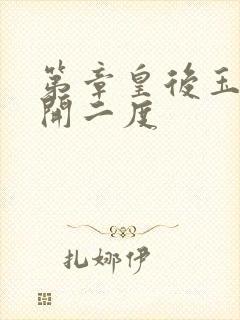 第章皇後玉
開二度
扎娜伊